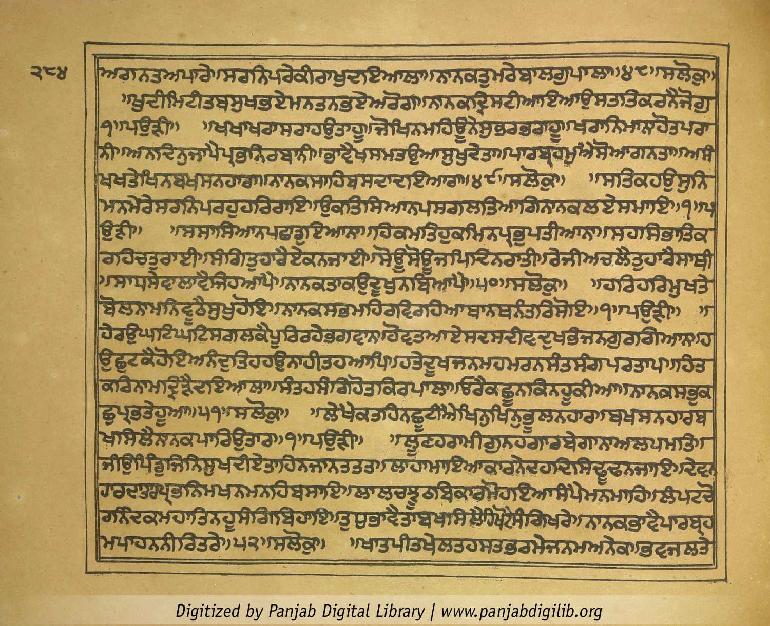 ੨੮੪
ਅਗਨਤਅਪਾਰੇ॥ਸਰਨਿਪਰੇਕੀਰਾਖੁਦਇਆਲਾ॥ਨਾਨਕਤੁਮਰੇਬਾਲਗੁਪਾਲਾ॥੪੮॥ਸਲੋਕੁ॥
॥ਖੁਦੀਮਿਟੀਤਬਸੁਖਭਏਮਨਤਨਭਏਅਰੋਗ॥ਨਾਨਕਦ੍ਰਿਸਟੀਆਇਆਉਸਤਤਿਕਰਨੈਜੋਗੁ
੧॥ਪਉੜੀ॥ ॥ਖਖਾਖਰਾਸਰਾਹਉਤਾਹੂ॥ਜੋਖਿਨਮਹਿਊਨੇਸੁਭਰਭਰਾਹੂ॥ਖਰਾਨਿਮਾਨਾਹੋਤਪਰਾ
ਨੀ॥ਅਨਦਿਨੁਜਾਪੈਪ੍ਰਭਨਿਰਬਾਨੀ॥ਭਾਵੈਖਸਮਤਉਆਸੁਖੁਦੇਤਾ॥ਪਾਰਬ੍ਰਹਮੁਐਸੋਆਗਨਤਾ॥ਅਸੰ
ਖਖਤੇਖਿਨਬਖਸਨਹਾਰਾ॥ਨਾਨਕਸਾਹਿਬਸਦਾਦਇਆਰਾ॥੪੯॥ਸਲੋਕੁ॥ ॥ਸਤਿਕਹਉਸੁਨਿ
ਮਨਮੇਰੇਸਰਨਿਪਰਹੁਹਰਿਰਾਇ॥ਉਕਤਿਸਿਆਨਪਸਗਲਤਿਆਗਿਨਾਨਕਲਏਸਮਾਇ॥੧॥ਪ
ਉੜੀ॥ ॥ਸਸਾਸਿਆਨਪਛਾਡੁਇਆਨਾ॥ਹਿਕਮਤਿਹੁਕਮਿਨਪ੍ਰਭੁਪਤੀਆਨਾ॥ਸਹਸਭਾਤਿਕ
ਰਹਿਚਤੁਰਾਈ॥ਸੰਗਿਤੁਹਾਰੈਏਕਨਜਾਈ॥ਸੋਊਸੋਊਜਪਿਦਿਨਰਾਤੀ॥ਰੇਜੀਅਚਲੈਤੁਹਾਰੈਸਾਥੀ
॥ਸਾਧਸੇਵਾਲਾਵੈਜਿਹਆਪੈ॥ਨਾਨਕਤਾਕਉਦੂਖੁਨਬਿਆਪੈ॥੫੦॥ਸਲੋਕੁ॥ ॥ਹਰਿਹਰਿਮੁਖਤੇ
ਬੋਲਨਾਮਨਿਵੂਠੈਸੁਖੁਹੋਇ॥ਨਾਨਕਸਭਮਹਿਰਵਿਰਹਿਆਥਾਨਥਨੰਤਰਿਸੋਇ॥੧॥ਪਉੜੀ॥ ॥
ਹੇਰਉਘਟਿਘਟਿਸਗਲਕੈਪੂਰਿਰਹੇਭਗਵਾਨ॥ਹੋਵਤਆਏਸਦਸਦੀਵਦੁਖਭੰਜਨਗੁਰਗਿਆਨ॥ਹ
ਉਛੁਟਕੈਹੋਇਅਨੰਦੁਤਿਹਹਉਨਾਹੀਤਹਆਪਿ॥ਹਤੇਦੂਖਜਨਮਹਮਰਨਸੰਤਸੰਗਪਰਤਾਪ॥ਹਿਤ
ਕਰਿਨਾਮਦ੍ਰਿੜੈਦਇਆਲਾ॥ਸੰਤਹਸੰਗਿਹੋਤਕਿਰਪਾਲਾ॥ਓਰੈਕਛੂਨਕਿਨਹੂਕੀਆ॥ਨਾਨਕਸਭੁਕ
ਛੁਪ੍ਰਭਤੇਹੂਆ॥੫੧॥ਸਲੋਕੁ॥ ॥ਲੇਖੈਕਤਹਿਨਛੂਟੀਐਖਿਨੁਖਿਨੁਭੂਲਨਹਾਰ॥ਬਖਸਨਹਾਰਬ
ਖਸਿਲੈਨਾਨਕਪਾਰਿਉਤਾਰ॥੧॥ਪਉੜੀ॥ ॥ਲੂਣਹਰਾਮੀਗੁਨਹਗਾਰਬੇਗਾਨਾਅਲਪਮਤਿ॥
ਜੀਉਪਿੰਡੁਜਿਨਿਸੁਖਦੀਏਤਾਹਿਨਜਾਨਤਤਤ॥ਲਾਹਾਮਾਇਆਕਾਰਨੇਦਹਦਿਸਿਢੂਢਨਜਾਇ॥ਦੇਵਨ
ਹਾਰਦਾਤਾਰਪ੍ਰਭਨਿਮਖਨਮਨਹਿਬਸਾਇ॥ਲਾਲਚਝੂਠਬਿਕਾਰਮੋਹਇਆਸੰਪੈਮਨਮਾਹਿ॥ਲੰਪਟਚੋ
ਰਨਿੰਦਕਮਹਾਤਿਨਹੂਸੰਗਿਬਿਹਾਇ॥ਤੁਧੁਭਾਵੈਤਾਬਖਸਿਲੈਹਿਖੋਟੇਸੰਗਿਖਰੇ॥ਨਾਨਕਭਾਵੈਪਾਰਬ੍ਰਹ
ਮਪਾਹਨਨੀਰਿਤਰੇ॥੫੨॥ਸਲੋਕੁ॥ ॥ਖਾਤਪੀਤਖੇਲਤਹਸਤਭਰਮੇਜਨਮਅਨੇਕ॥ਭਵਜਲਤੇ
Digitized by Panjab Digital Library | www.panjabdigilib.org